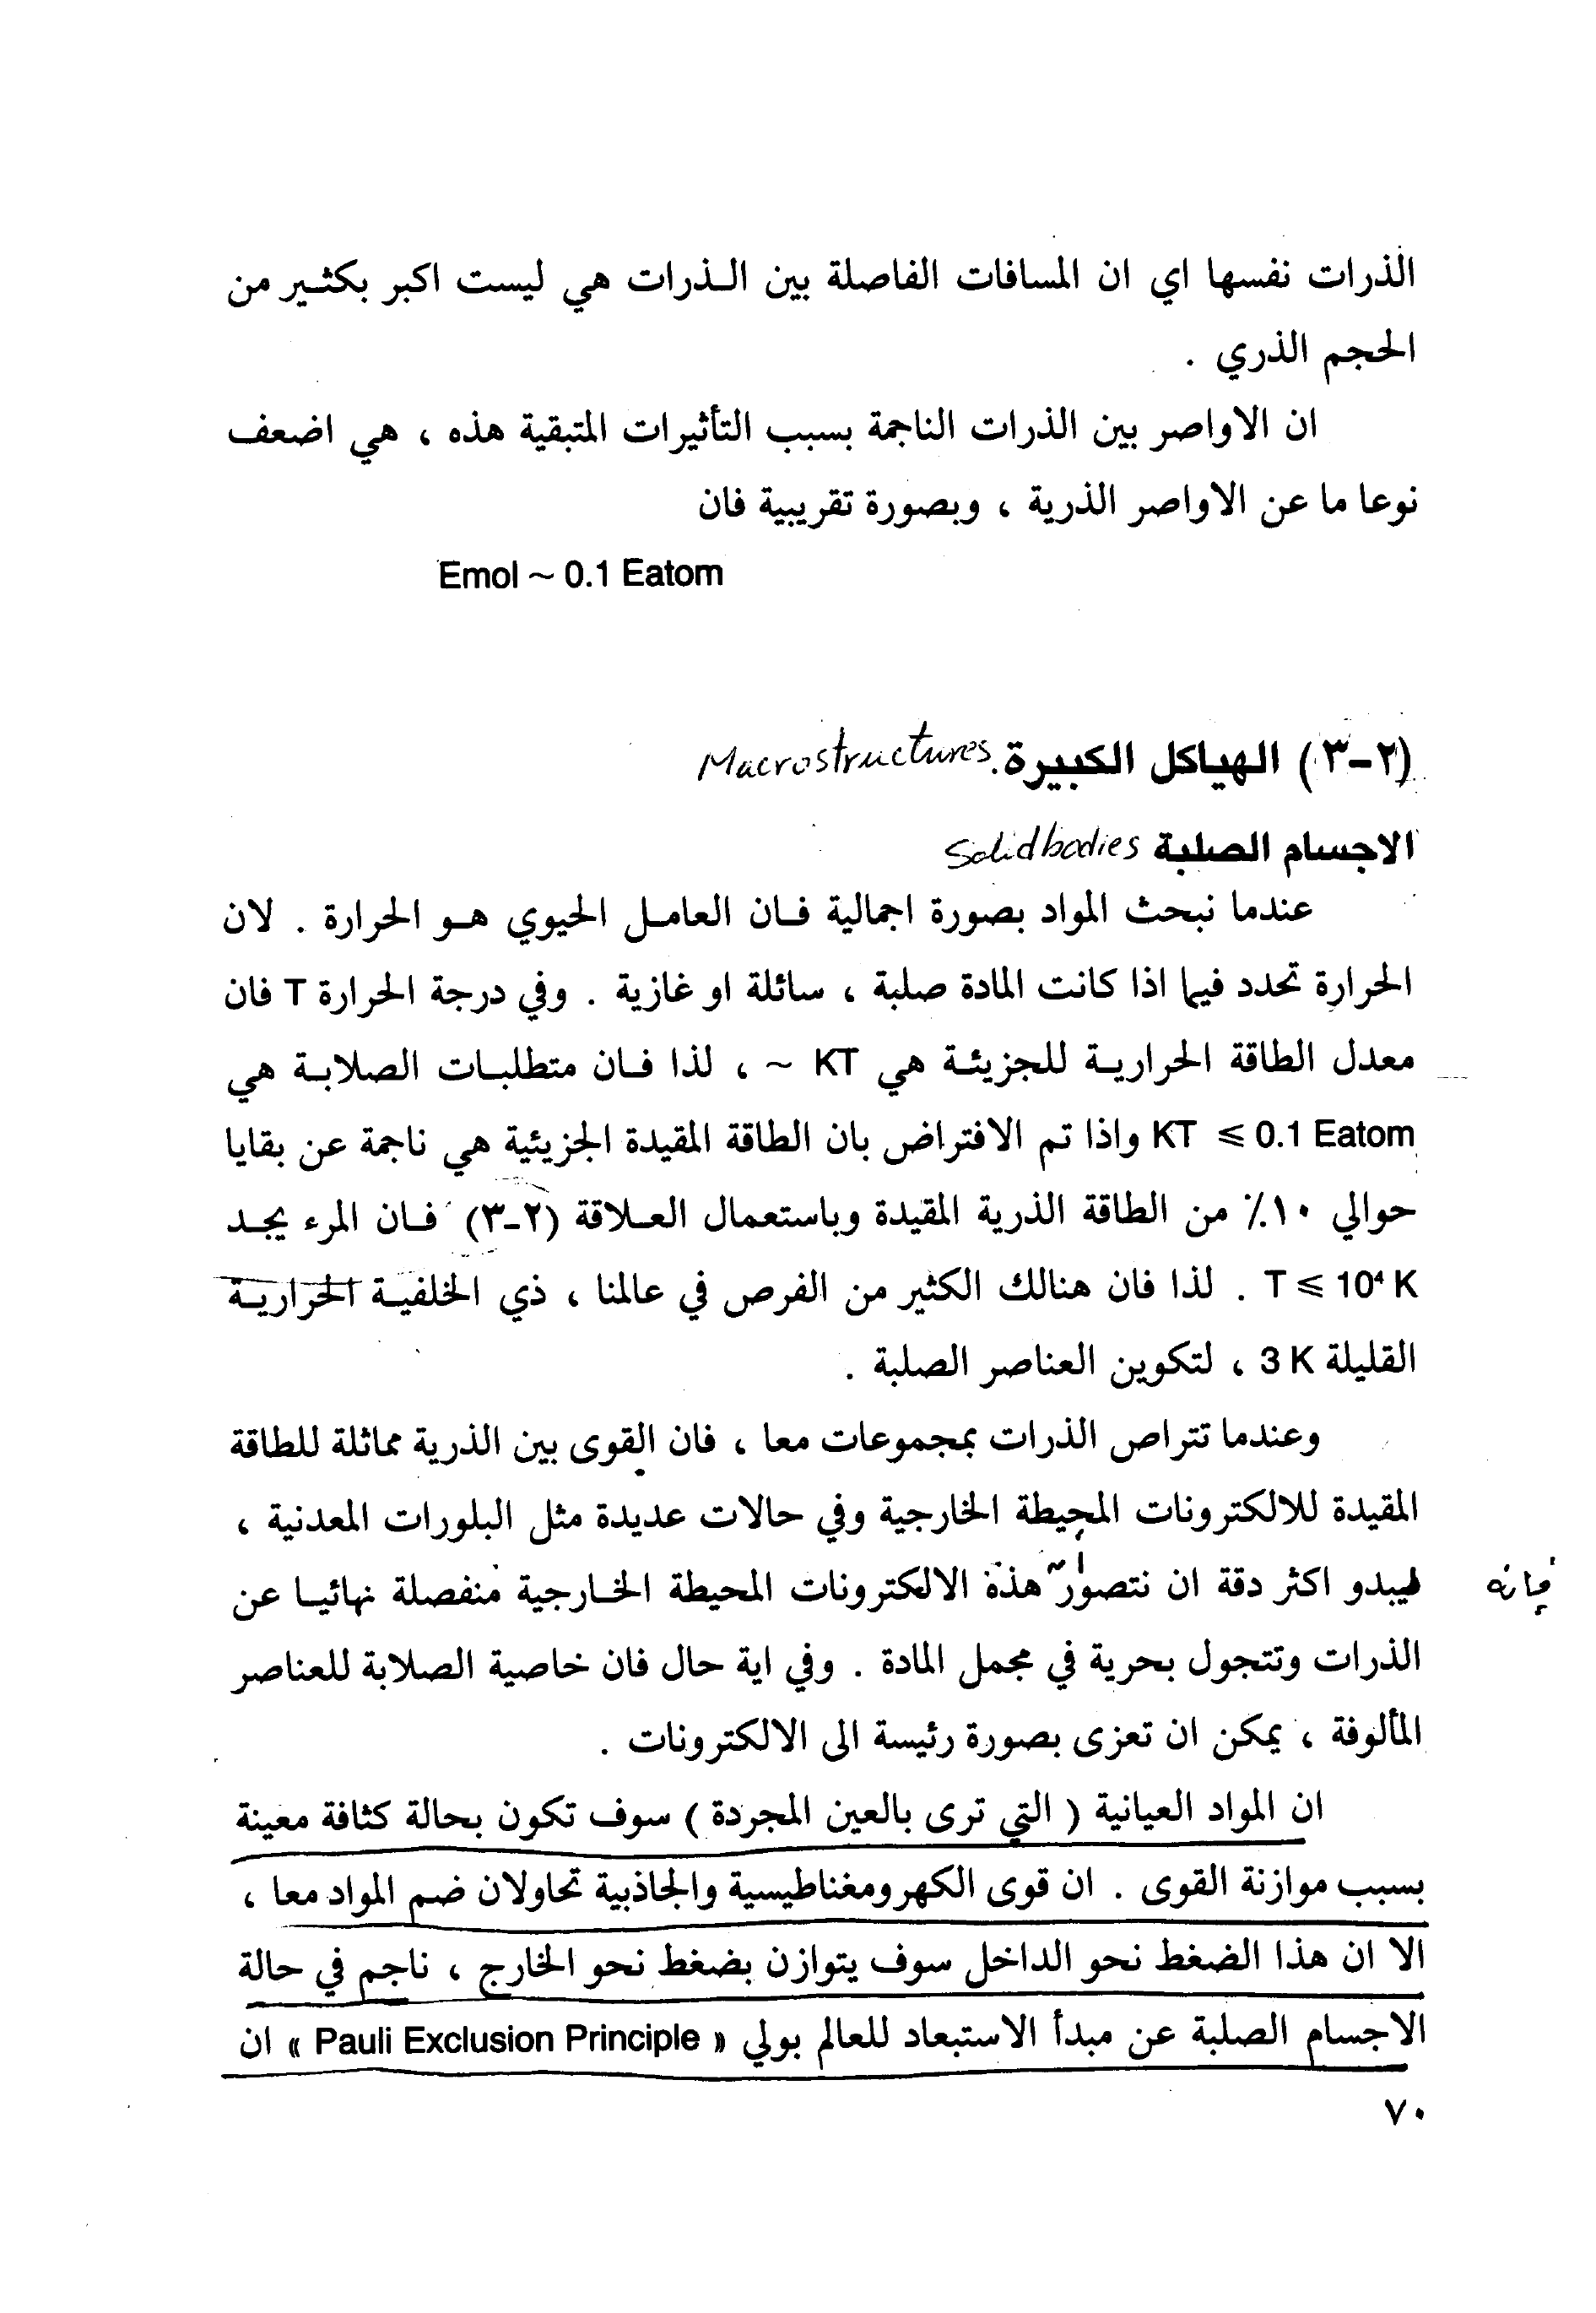 الذرات نفسها اي ان المسافات الفاصلة بين الـذرات هي ليست اكبر بكثـير من
الحجم الذري .
ان الاواصر بين الذرات الناجمة بسبب التأثيرات المتبقية هذه ، هي اضعف
نوعا ما عن الاواصر الذرية ، وبصورة تقريبية فان
Emol ~ 0.1 Eatom
(٢-٣) الهياكل الكبيرة. Macrostructures
الاجسام الصلبة Solid bodies
عندما نبحث المواد بصورة اجمالية فـان العامـل الحيوي هـو الحرارة . لان
الحرارة تحدد فيما اذا كانت المادة صلبة ، سائلة او غازية . وفي درجة الحرارة T فان
معدل الطاقة الحراريـة للجزيئـة هي KT ~ ، لذا فـان متطلبـات الصلابـة هي
KT ⩽ 0.1 Eatom واذا تم الافتراض بان الطاقة المقيدة الجزيئية هي ناجمة عن بقايا
حوالي ١٠٪ من الطاقة الذرية المقيدة وباستعمال العـلاقة (٢-٣) فـان المرء يجـد
T ⩽ 10⁴ K . لذا فان هنالك الكثير من الفرص في عالمنا ، ذي الخلفيـة الحراريـة
القليلة 3 K ، لتكوين العناصر الصلبة .
وعندما تتراص الذرات بمجموعات معا ، فان القوى بين الذرية مماثلة للطاقة
المقيدة للالكترونات المحيطة الخارجية وفي حالات عديدة مثل البلورات المعدنية ،
فيبدو اكثر دقة ان نتصور هذة الالكترونات المحيطة الخـارجية منفصلة نهائيـا عن
فإنه
الذرات وتتجول بحرية في مجمل المادة . وفي اية حال فان خاصية الصلابة للعناصر
المألوفة ، يمكن ان تعزى بصورة رئيسة الى الالكترونات .
ان المواد العيانية ( التي ترى بالعين المجردة ) سوف تكون بحالة كثافة معينة
بسبب موازنة القوى . ان قوى الكهرومغناطيسية والجاذبية تحاولان ضم المواد معا ،
الا ان هذا الضغط نحو الداخل سوف يتوازن بضغط نحو الخارج ، ناجم في حالة
الاجسام الصلبة عن مبدأ الاستبعاد للعالم بولي « Pauli Exclusion Principle » ان
٧٠